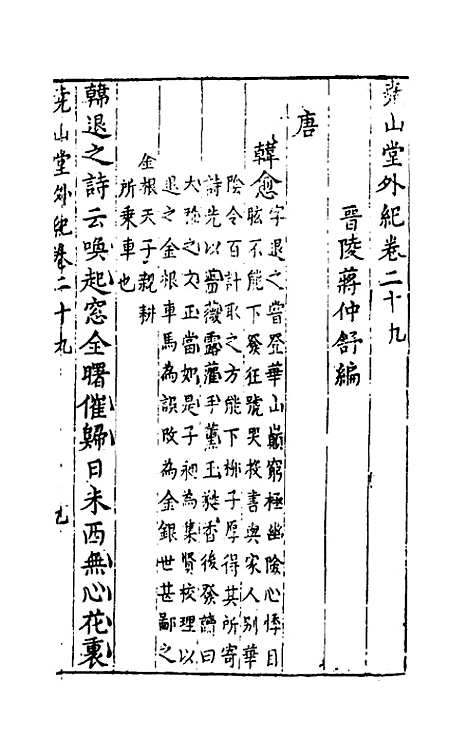 堯山堂外紀卷二十九
晉陵蔣仲舒編
唐
韓愈
字退之嘗登華山巔窮極幽險心悸目
眩不能下發狂號哭投書與家人別華
陰令百計取之方能下柳子厚得其所寄
詩先以薔薇露盥手薰玉蕤香後發讀曰
大雅之文正當如是子昶為集賢校理以
退之金根車馬為誤改為金銀世甚鄙之
金根天子親耕
所乘車也
韓退之詩云喚起窓全曙催歸日未西無心花裏
堯山堂外紀卷二十九